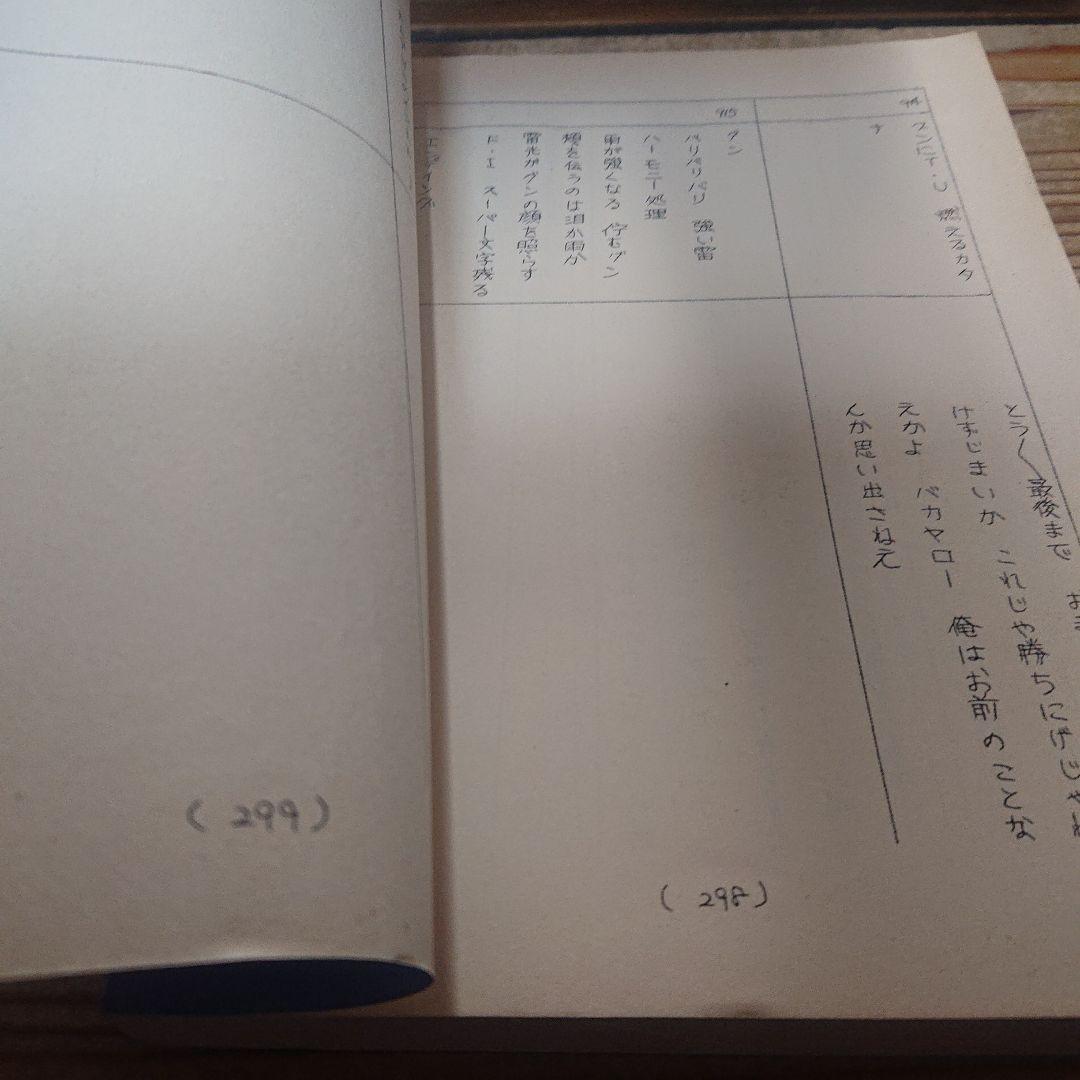 燃えるカタ
ナ
とう〱最後まで
けずじまいか これじゃ勝ちにげじゃね
えかよ バカヤロー 俺はお前のことな
んか思い出さねえ
915
グン
バリバリバリ 強い雷
ハーモニー処理
雨が強くなる 佇むグン
頬を伝うのは泪か雨か
雷光がグンの顔を照らす
F・I スーパー文字残る
エンディング
(298)
(299)